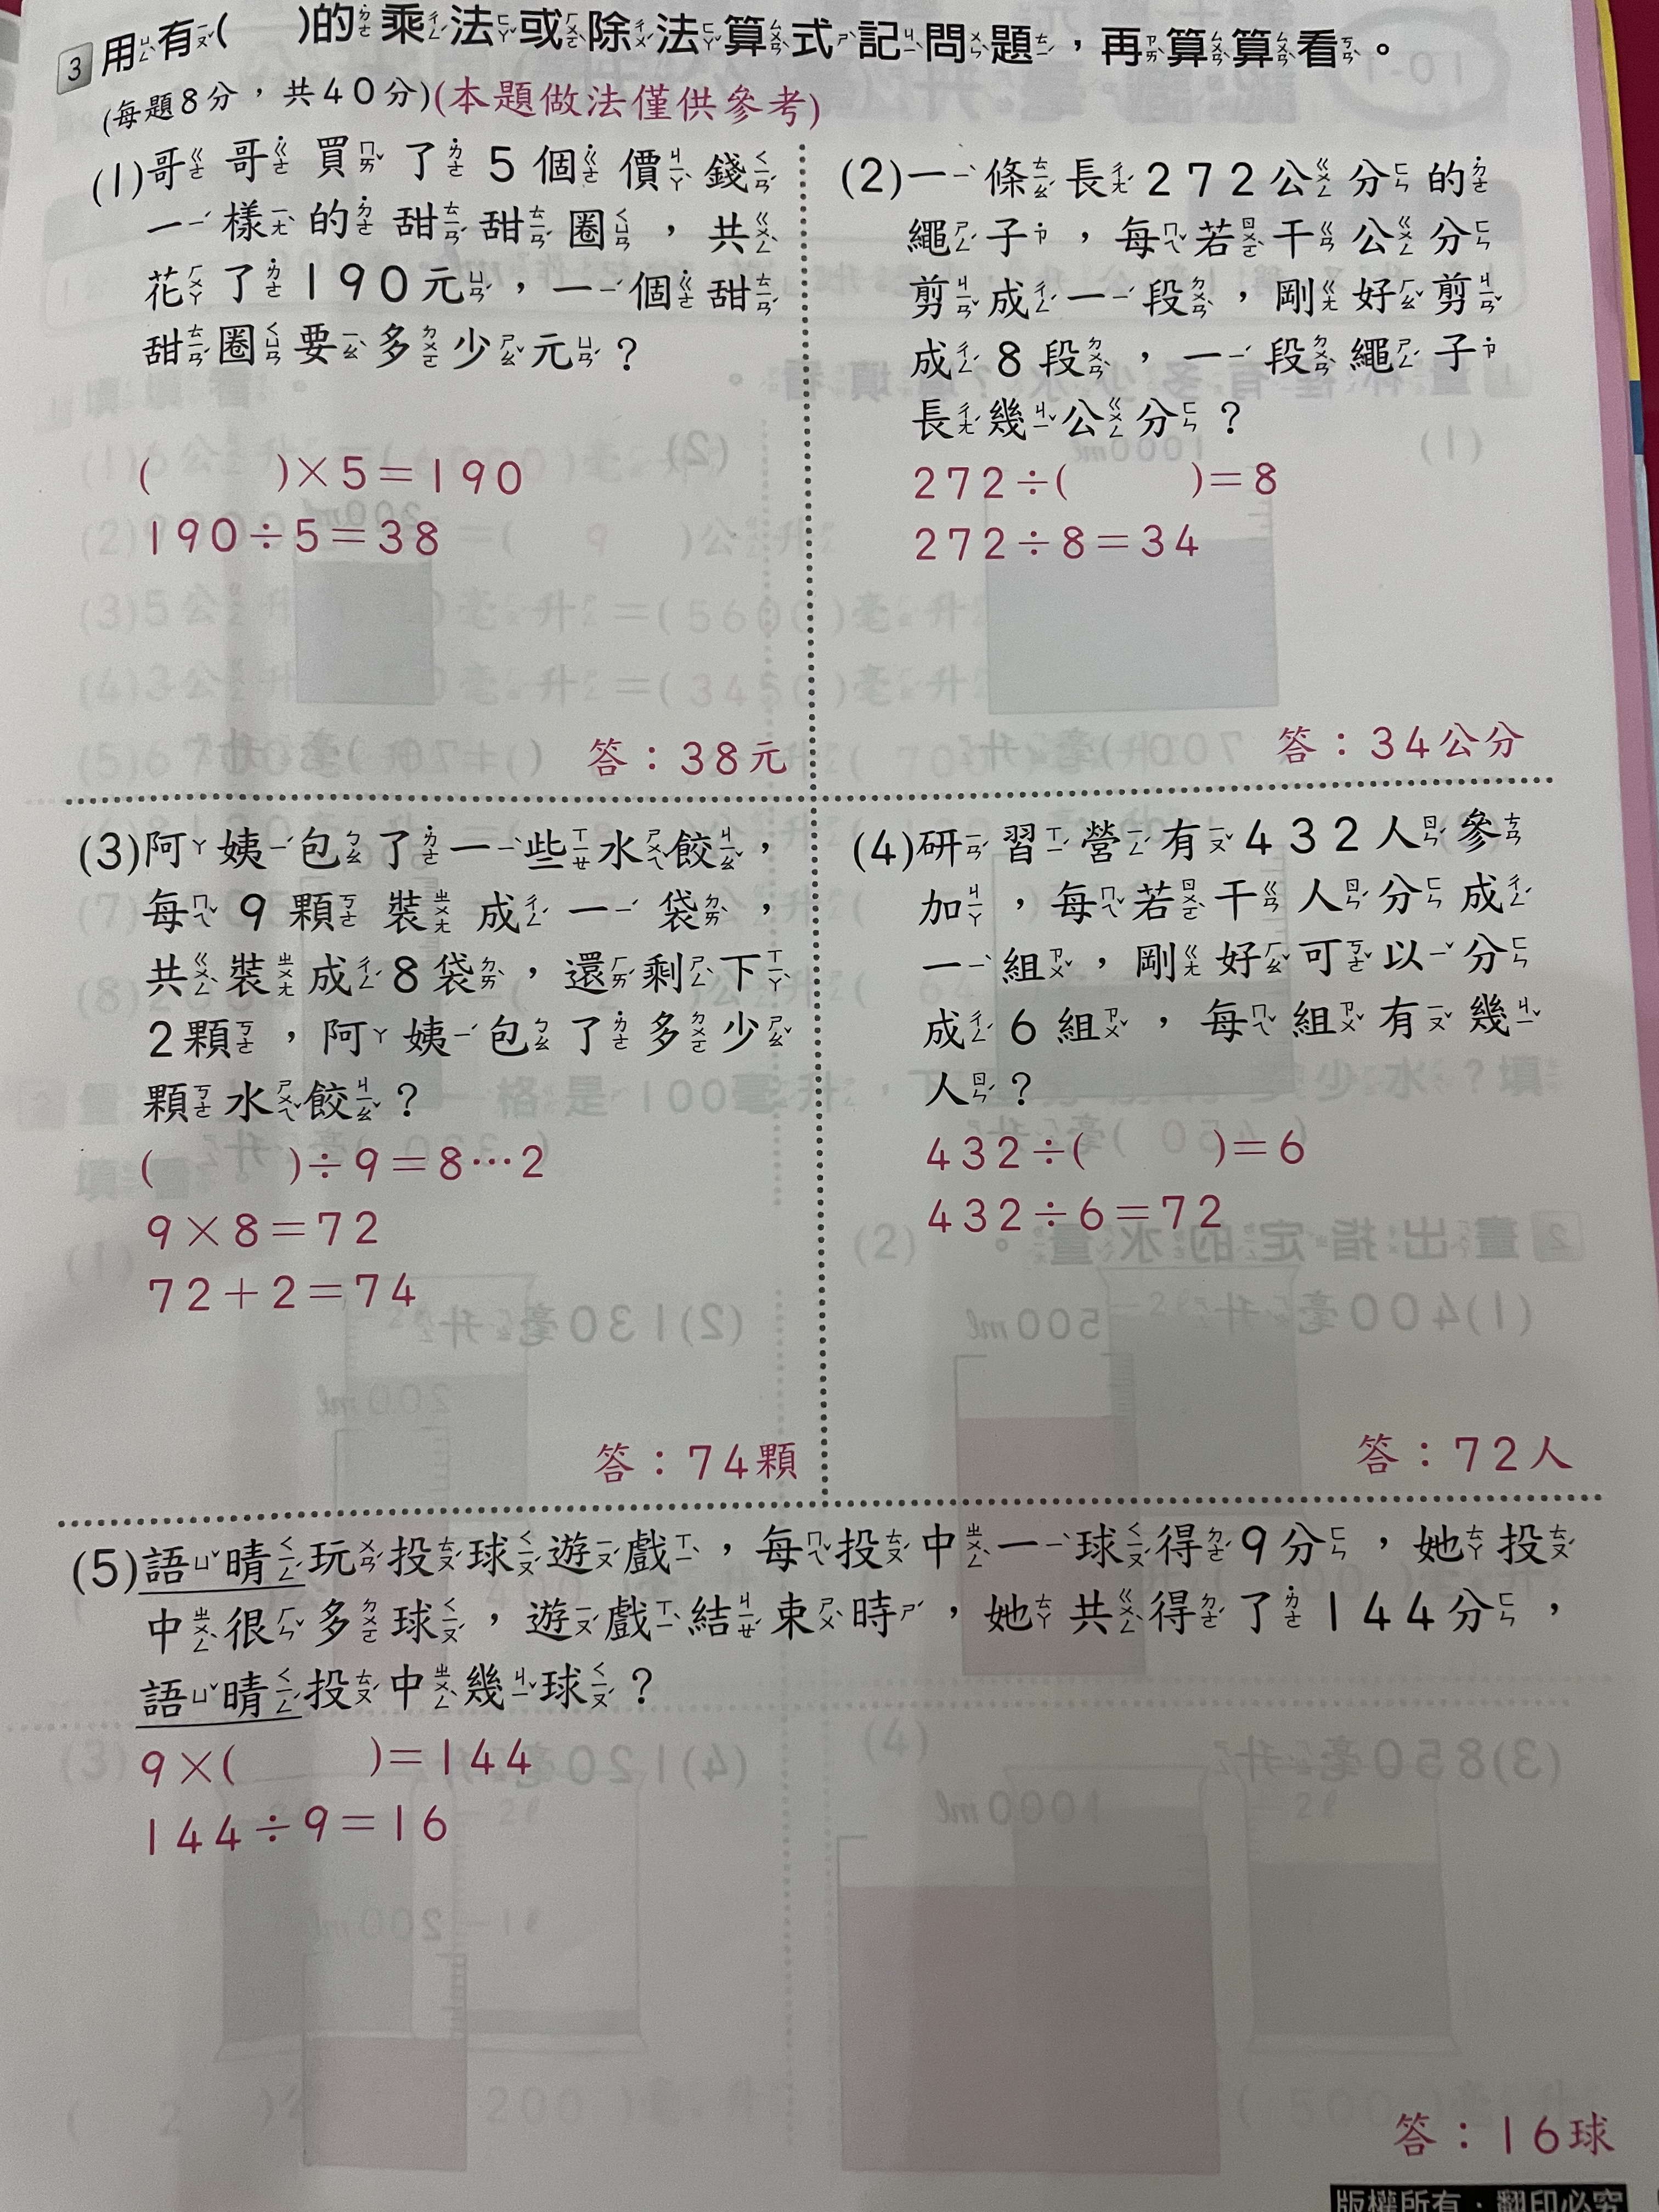 3 用有(　　)的乘法或除法算式記問題，再算算看。
(每題8分，共40分)(本題做法僅供參考)
(1)哥哥買了5個價錢
一樣的甜甜圈，共
花了190元，一個甜
甜圈要多少元？
(　　)×5=190
190÷5=38
答：38元
(2)一條長272公分的
繩子，每若干公分
剪成一段，剛好剪
成8段，一段繩子
長幾公分？
272÷(　　)=8
272÷8=34
答：34公分
(3)阿姨包了一些水餃，
每9顆裝成一袋，
共裝成8袋，還剩下
2顆，阿姨包了多少
顆水餃？
(　　)÷9=8…2
9×8=72
72+2=74
答：74顆
(4)研習營有432人參
加，每若干人分成
一組，剛好可以分
成6組，每組有幾
人？
432÷(　　)=6
432÷6=72
答：72人
(5)語晴玩投球遊戲，每投中一球得9分，她投
中很多球，遊戲結束時，她共得了144分，
語晴投中幾球？
9×(　　)=144
144÷9=16
答：16球
版權所有．翻印必究